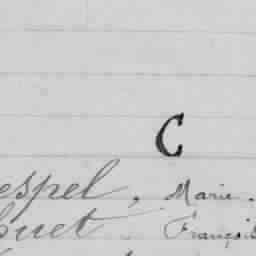 C
espel, Marie.
uet François